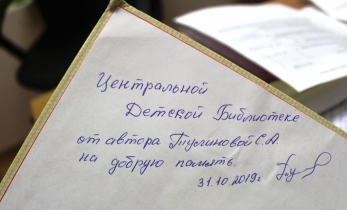 Центральной
Детской Библиотеке
от автора Тулиновой С.А.
на добрую память.
31.10.2019г